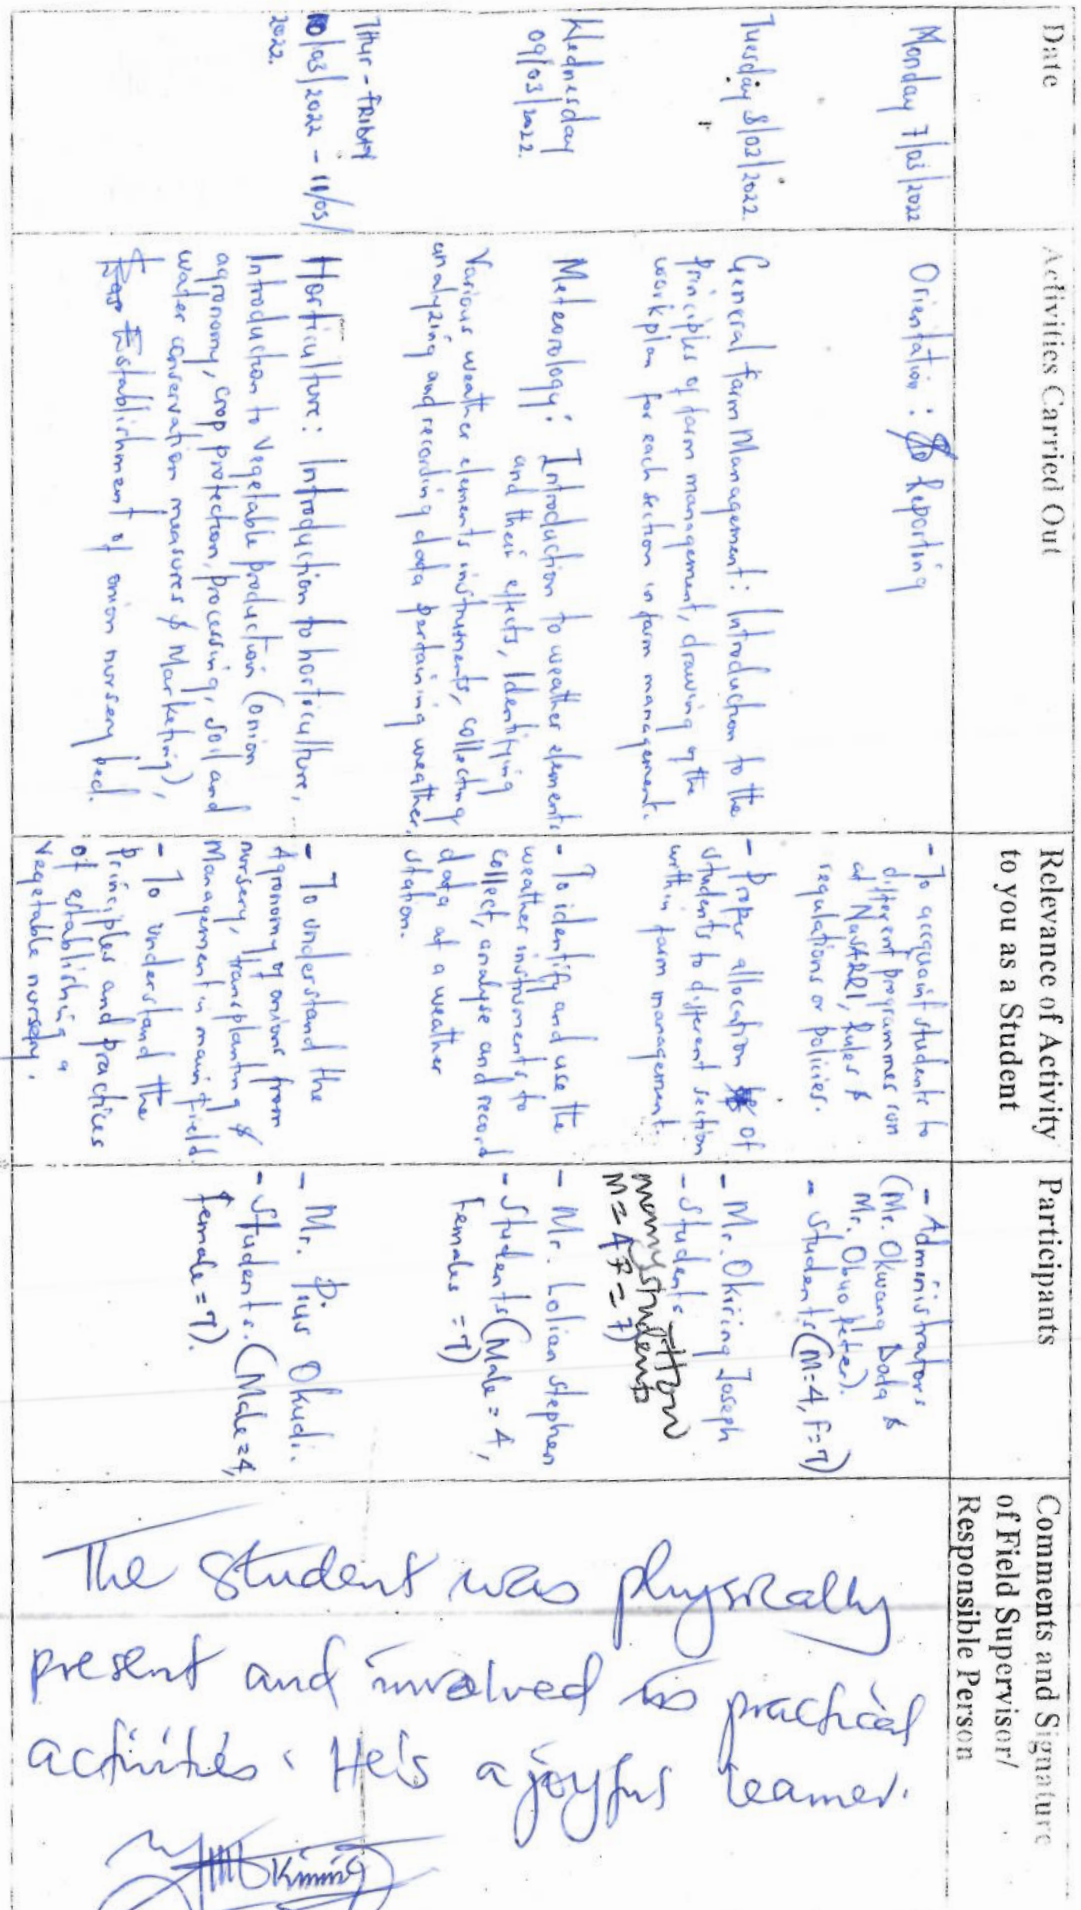 Date
Activities Carried Out
Relevance of Activity
to you as a Student
Participants
Comments and Signature
of Field Supervisor/
Responsible Person
Monday 7/03/2022
Orientation: Reporting
- To acquaint students to
different programmes run
at NaSARRI, Rules &
regulations or policies.
- Administrators
(Mr. Okwang Dada &
Mr. Obuo Peter).
- Students (M=4, F=7)
Tuesday 8/03/2022
General farm Management: Introduction to the
principles of farm management, drawing of the
workplan for each section in farm management.
- Proper allocation of
students to different section
with in farm management.
- Mr. Okiring Joseph
- Students
many students
M=4 F=7)
Wednesday
09/03/2022.
Meteorology: Introduction to weather elements
and their effects, Identifying
Various weather elements instruments, collecting
analyzing and recording data pertaining weather.
- To identify and use the
weather instruments to
collect, analyse and record
data at a weather
station.
- Mr. Lolian Stephen
- Students (Male = 4,
Females = 7)
THur - FRIDAY
10/03/2022 - 11/03/
2022.
Horticulture: Introduction to horticulture,
Introduction to Vegetable production (onion
agronomy, crop protection, processing, soil and
water conservation measures & Marketing),
Establishment of onion nursery bed.
- To understand the
Agronomy of onions from
nursery, transplanting &
Management in main field.
- To understand the
principles and practices
of establishing a
vegetable nursery.
- Mr. Pius Okudi.
- Students. (Male=4,
Female=7).
The student was physically
present and involved in practical
activities. He's a joyful learner.